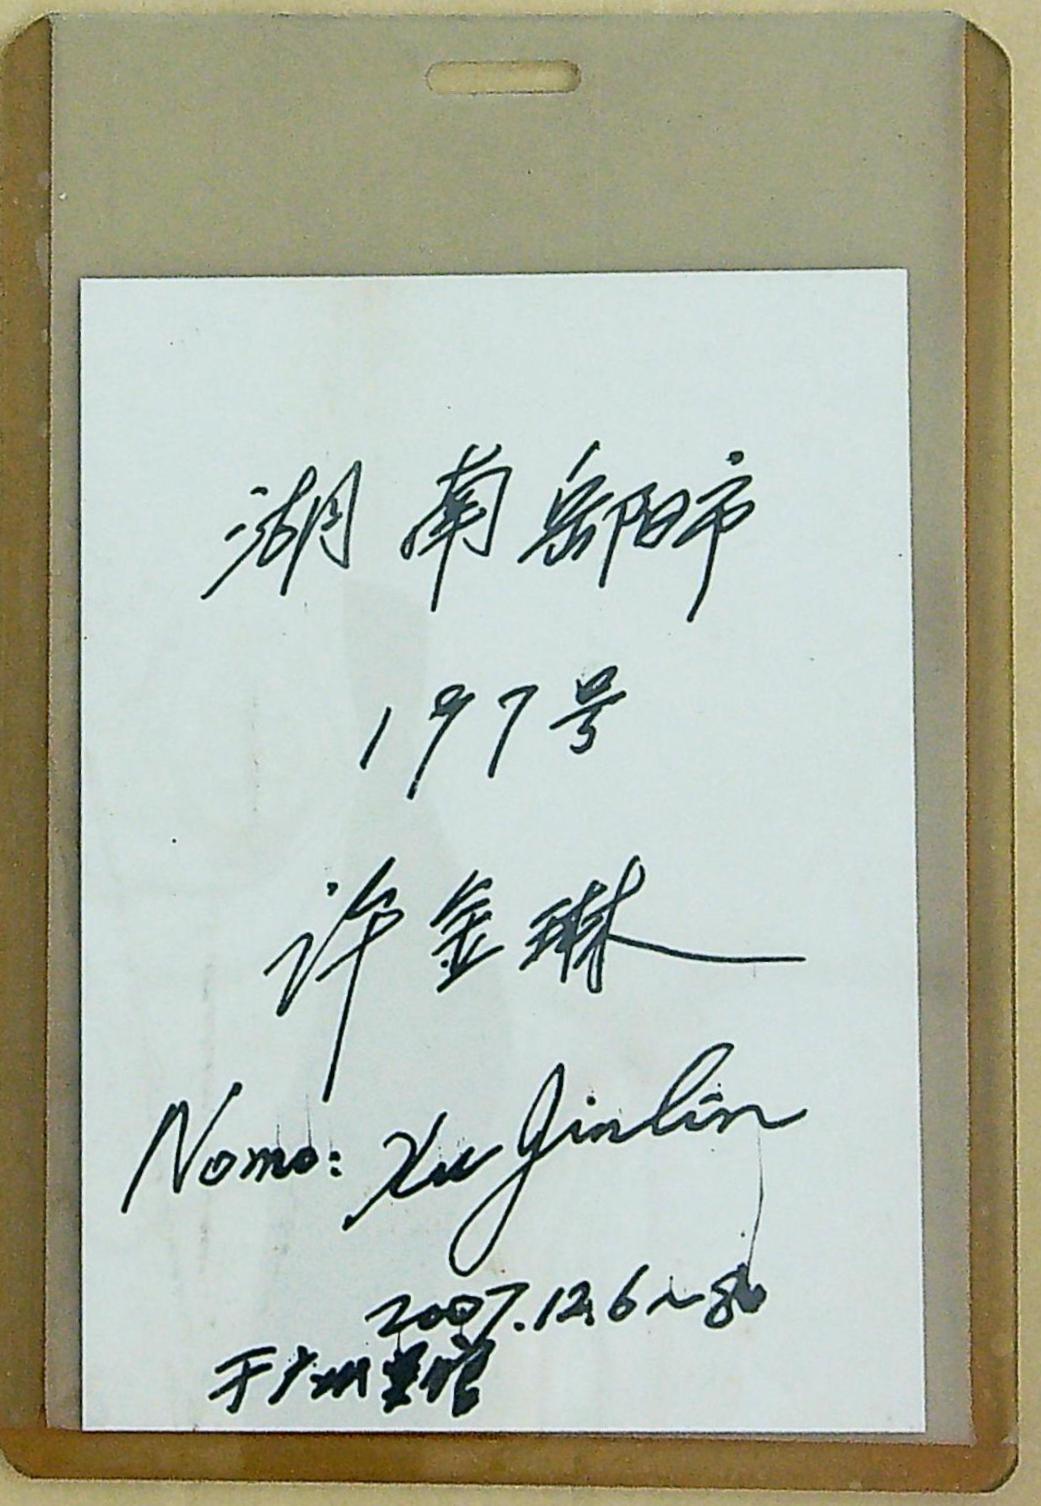 湖南岳阳市
197号
许金琳
Nomo: Xu Jinlin
2007.12.6~8
于广州